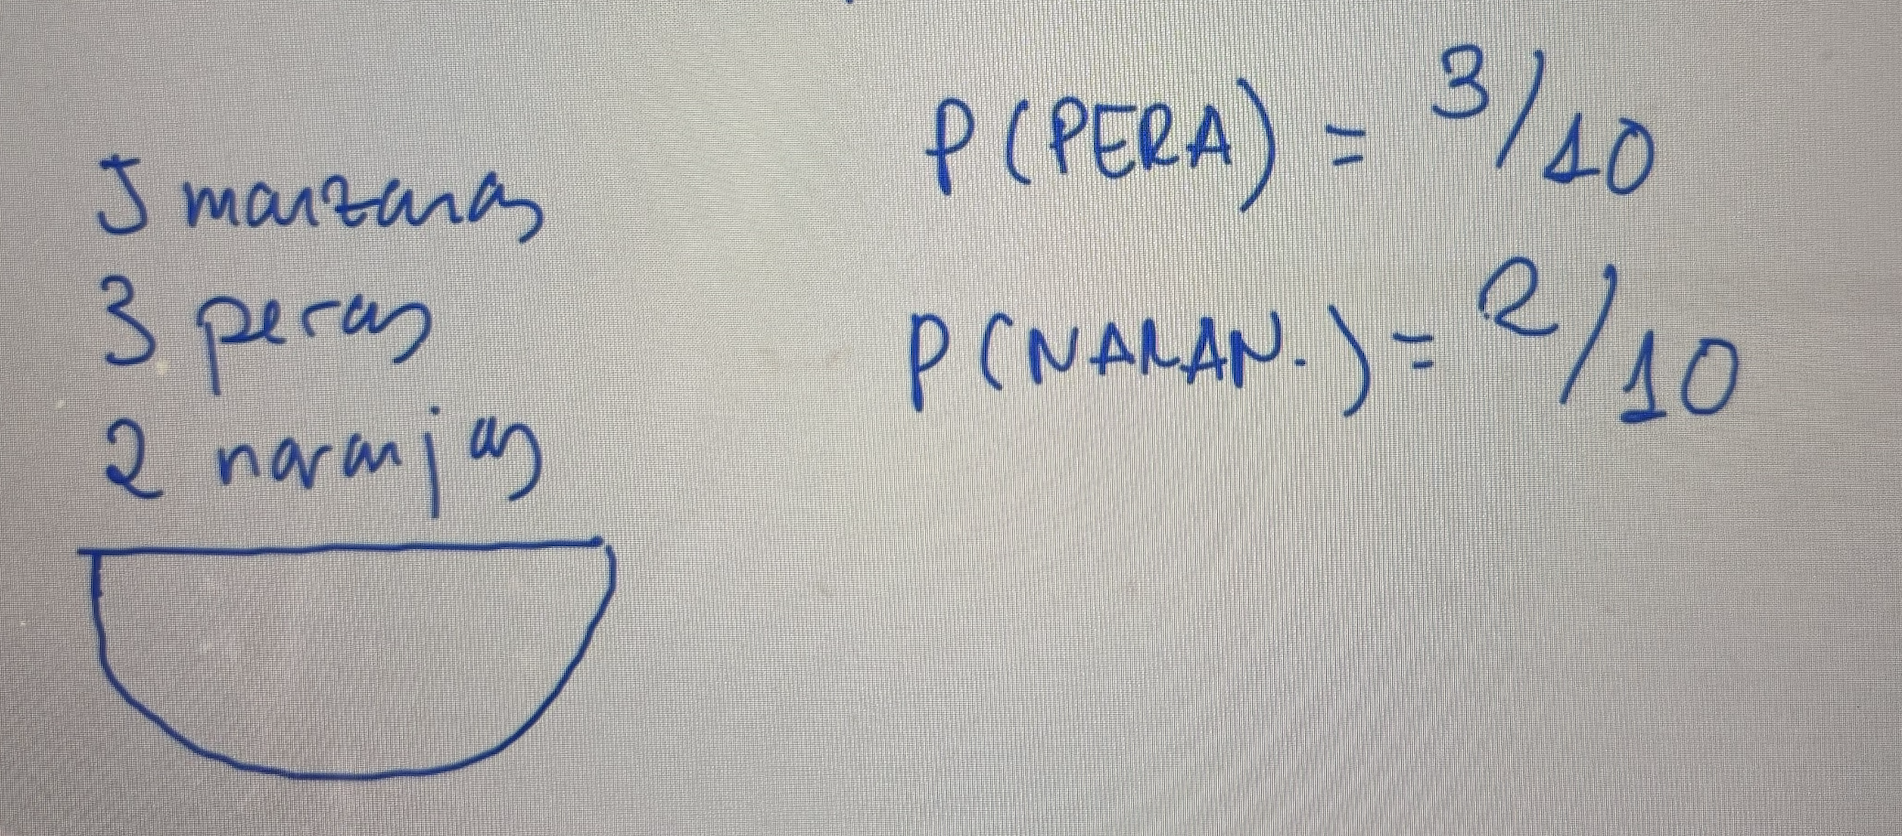 5 manzanas
3 peras
2 naranjas
P(PERA) = 3/10
P(NARAN.) = 2/10